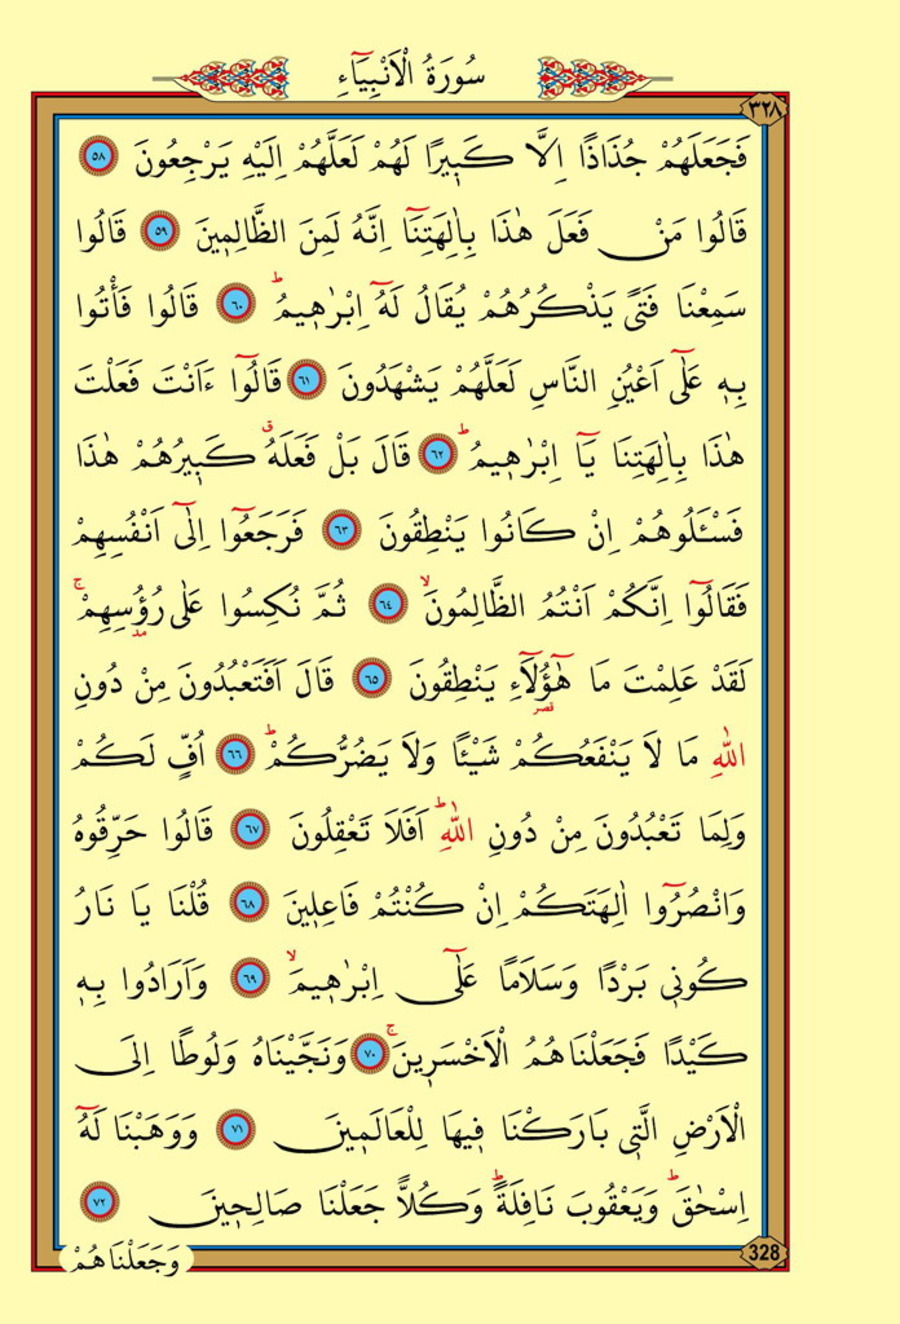 سُورَةُ الْاَنْبِيَٓاءِ
٣٢٨
فَجَعَلَهُمْ جُذَاذًا اِلَّا كَبٖيرًا لَهُمْ لَعَلَّهُمْ اِلَيْهِ يَرْجِعُونَ ٥٨
قَالُوا مَنْ فَعَلَ هٰذَا بِاٰلِهَتِنَٓا اِنَّهُ لَمِنَ الظَّالِمٖينَ ٥٩ قَالُوا
سَمِعْنَا فَتًى يَذْكُرُهُمْ يُقَالُ لَهُٓ اِبْرٰهٖيمُ ؕ ٦٠ قَالُوا فَأْتُوا
بِهٖ عَلٰٓى اَعْيُنِ النَّاسِ لَعَلَّهُمْ يَشْهَدُونَ ٦١ قَالُٓوا ءَاَنْتَ فَعَلْتَ
هٰذَا بِاٰلِهَتِنَا يَٓا اِبْرٰهٖيمُ ؕ ٦٢ قَالَ بَلْ فَعَلَهُ ق كَبٖيرُهُمْ هٰذَا
فَسْـَٔلُوهُمْ اِنْ كَانُوا يَنْطِقُونَ ٦٣ فَرَجَعُٓوا اِلٰٓى اَنْفُسِهِمْ
فَقَالُٓوا اِنَّكُمْ اَنْتُمُ الظَّالِمُونَ ۙ ٦٤ ثُمَّ نُكِسُوا عَلٰى رُؤُسِهِمْ ۚ
لَقَدْ عَلِمْتَ مَا هٰٓؤُ۬لَٓاءِ يَنْطِقُونَ ٦٥ قَالَ اَفَتَعْبُدُونَ مِنْ دُونِ
اللّٰهِ مَا لَا يَنْفَعُكُمْ شَيْئًا وَلَا يَضُرُّكُمْ ؕ ٦٦ اُفٍّ لَكُمْ
وَلِمَا تَعْبُدُونَ مِنْ دُونِ اللّٰهِ ؕ اَفَلَا تَعْقِلُونَ ٦٧ قَالُوا حَرِّقُوهُ
وَانْصُرُٓوا اٰلِهَتَكُمْ اِنْ كُنْتُمْ فَاعِلٖينَ ٦٨ قُلْنَا يَا نَارُ
كُونٖى بَرْدًا وَسَلَامًا عَلٰٓى اِبْرٰهٖيمَ ۙ ٦٩ وَاَرَادُوا بِهٖ
كَيْدًا فَجَعَلْنَاهُمُ الْاَخْسَرٖينَ ۚ ٧٠ وَنَجَّيْنَاهُ وَلُوطًا اِلَى
الْاَرْضِ الَّتٖى بَارَكْنَا فٖيهَا لِلْعَالَمٖينَ ٧١ وَوَهَبْنَا لَهُٓ
اِسْحٰقَ ؕ وَيَعْقُوبَ نَافِلَةً ؕ وَكُلًّا جَعَلْنَا صَالِحٖينَ ٧٢
328
وَجَعَلْنَاهُمْ